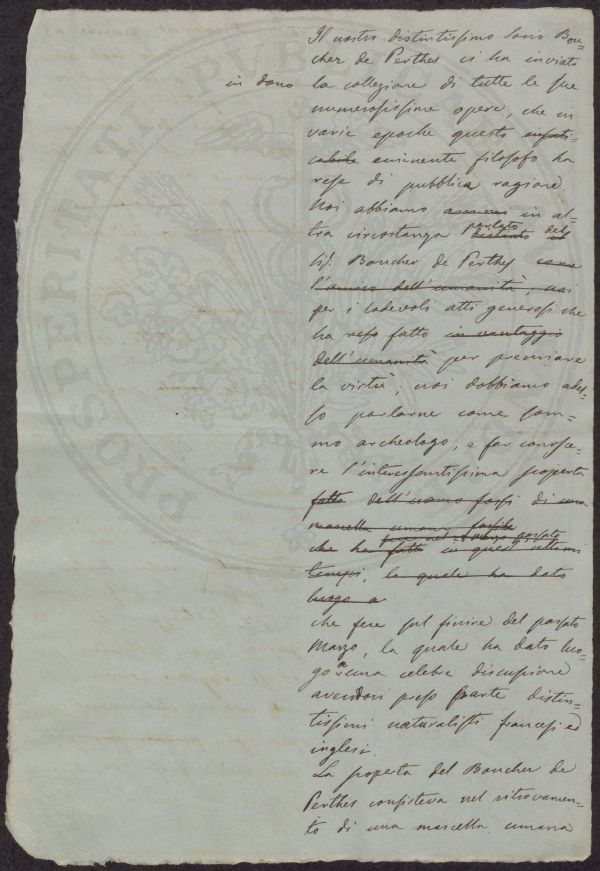 Il nostro distintissimo Socio Bou-
cher de Perthes ci ha inviato
in dono la collezione di tutte le sue
numerosissime opere, che in
varie epoche questo infati-
cabile eminente filosofo ha
rese di pubblica ragione.
Noi abbiamo in al-
tra circostanza parlato distinto del
Sig. Boucher de Perthes come
l'amico dell'umanità, noi
per i lodevoli atti generosi che
ha reso fatto in vantaggio
dell'umanità per premiare
la virtù; noi dobbiamo ades-
so parlarne come som-
mo archeologo, e far conosce-
re l'interessantissima scoperta
fatta dell'uomo fossi di una
mascella umana fossile
che ha fatto in questi ultimi
tempi, la quale ha dato
luogo a
che fece sul finire del passato
Marzo, la quale ha dato luo-
go a una celebre discussione
avendovi preso parte distin-
tissimi naturalisti francesi ed
inglesi.
La scoperta del Boucher de
Perthes consisteva nel ritrovamen-
to di una mascella umana
PROSPERITATI PVBL